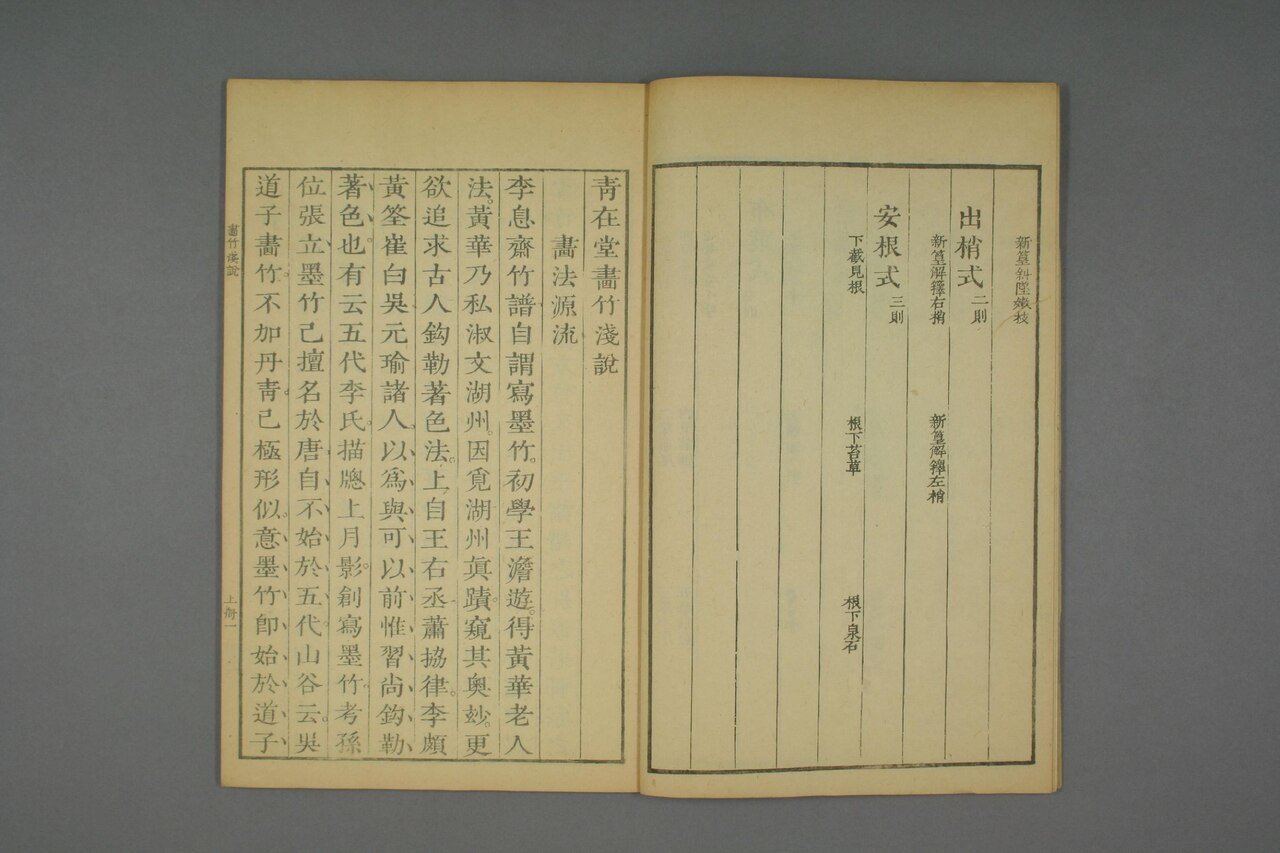 新篁斜墜嫩枝
出梢式 二則
新篁解籜右梢 新篁解籜左梢
安根式 三則
下截見根 根下苔草 根下泉石
青在堂畫竹淺說
畫法源流
李息齋竹譜自謂寫墨竹。初學王澹遊。得黃華老人
法。黃華乃私淑文湖州。因覓湖州眞蹟。窺其奧妙。更
欲追求古人鈎勒著色法。上自王右丞蕭協律。李頗
黃筌崔白吳元瑜諸人。以爲與可以前惟習尚鈎勒
著色也。有云五代李氏。描牕上月影。創寫墨竹。考孫
位張立墨竹已擅名於唐。自不始於五代。山谷云。吳
道子畫竹。不加丹青。已極形似。意墨竹卽始於道子
畫竹淺說
上冊一